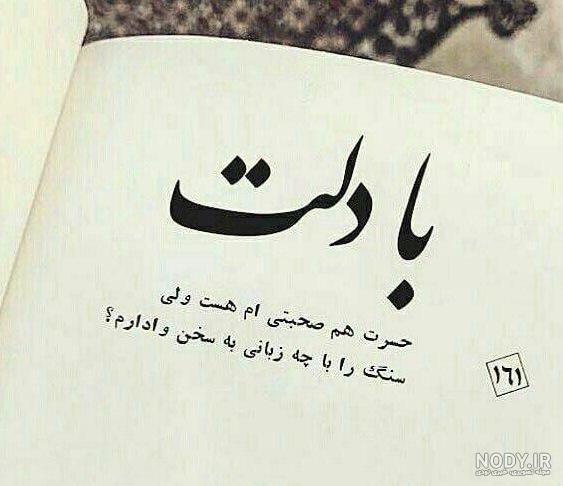 با دلت
حسرت هم صحبتی ام هست ولی
سنگ را با چه زبانی به سخن وادارم؟
۱۶۱
NODY.IR